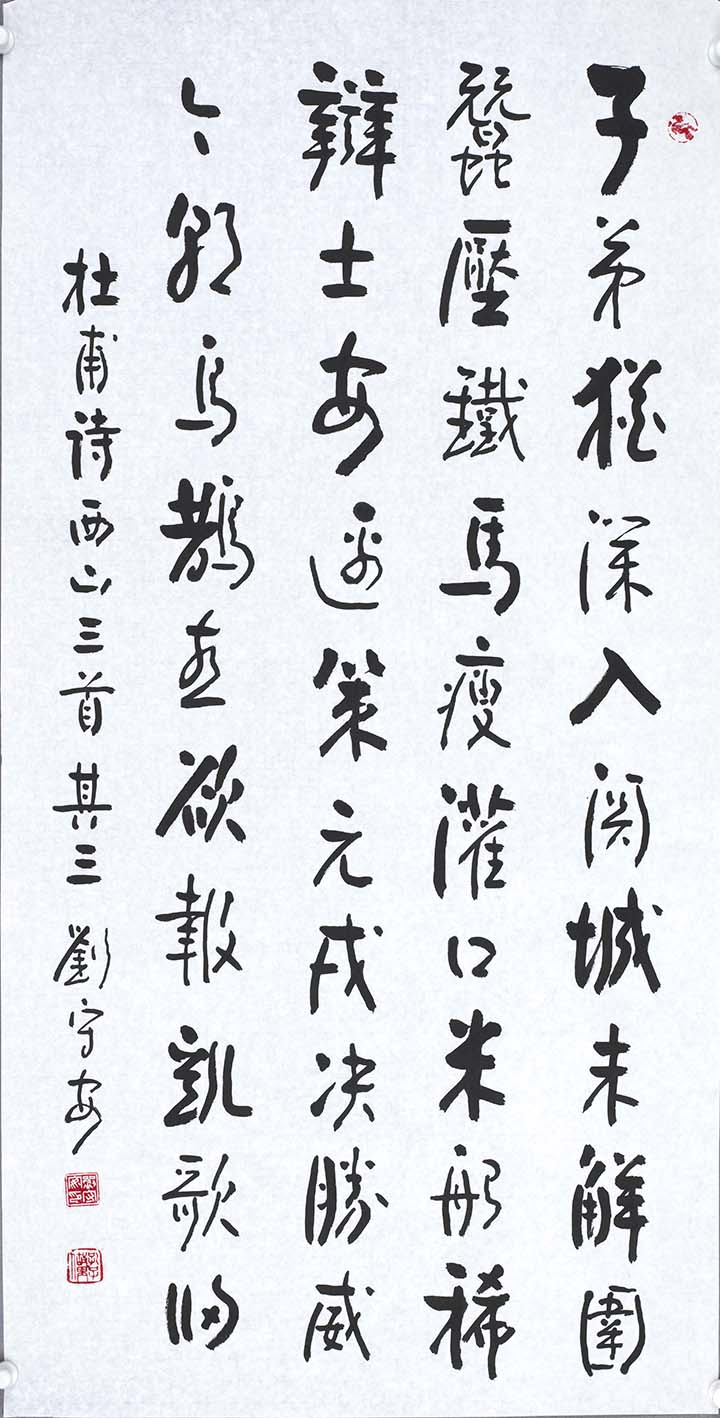 子弟猶深入関城未解圍
蠶壓鐵馬瘦灌口米船稀
辯士安邊策元戎决勝威
今朝烏鵲喜欲報凱歌歸
杜甫诗西山三首其三 劉守安